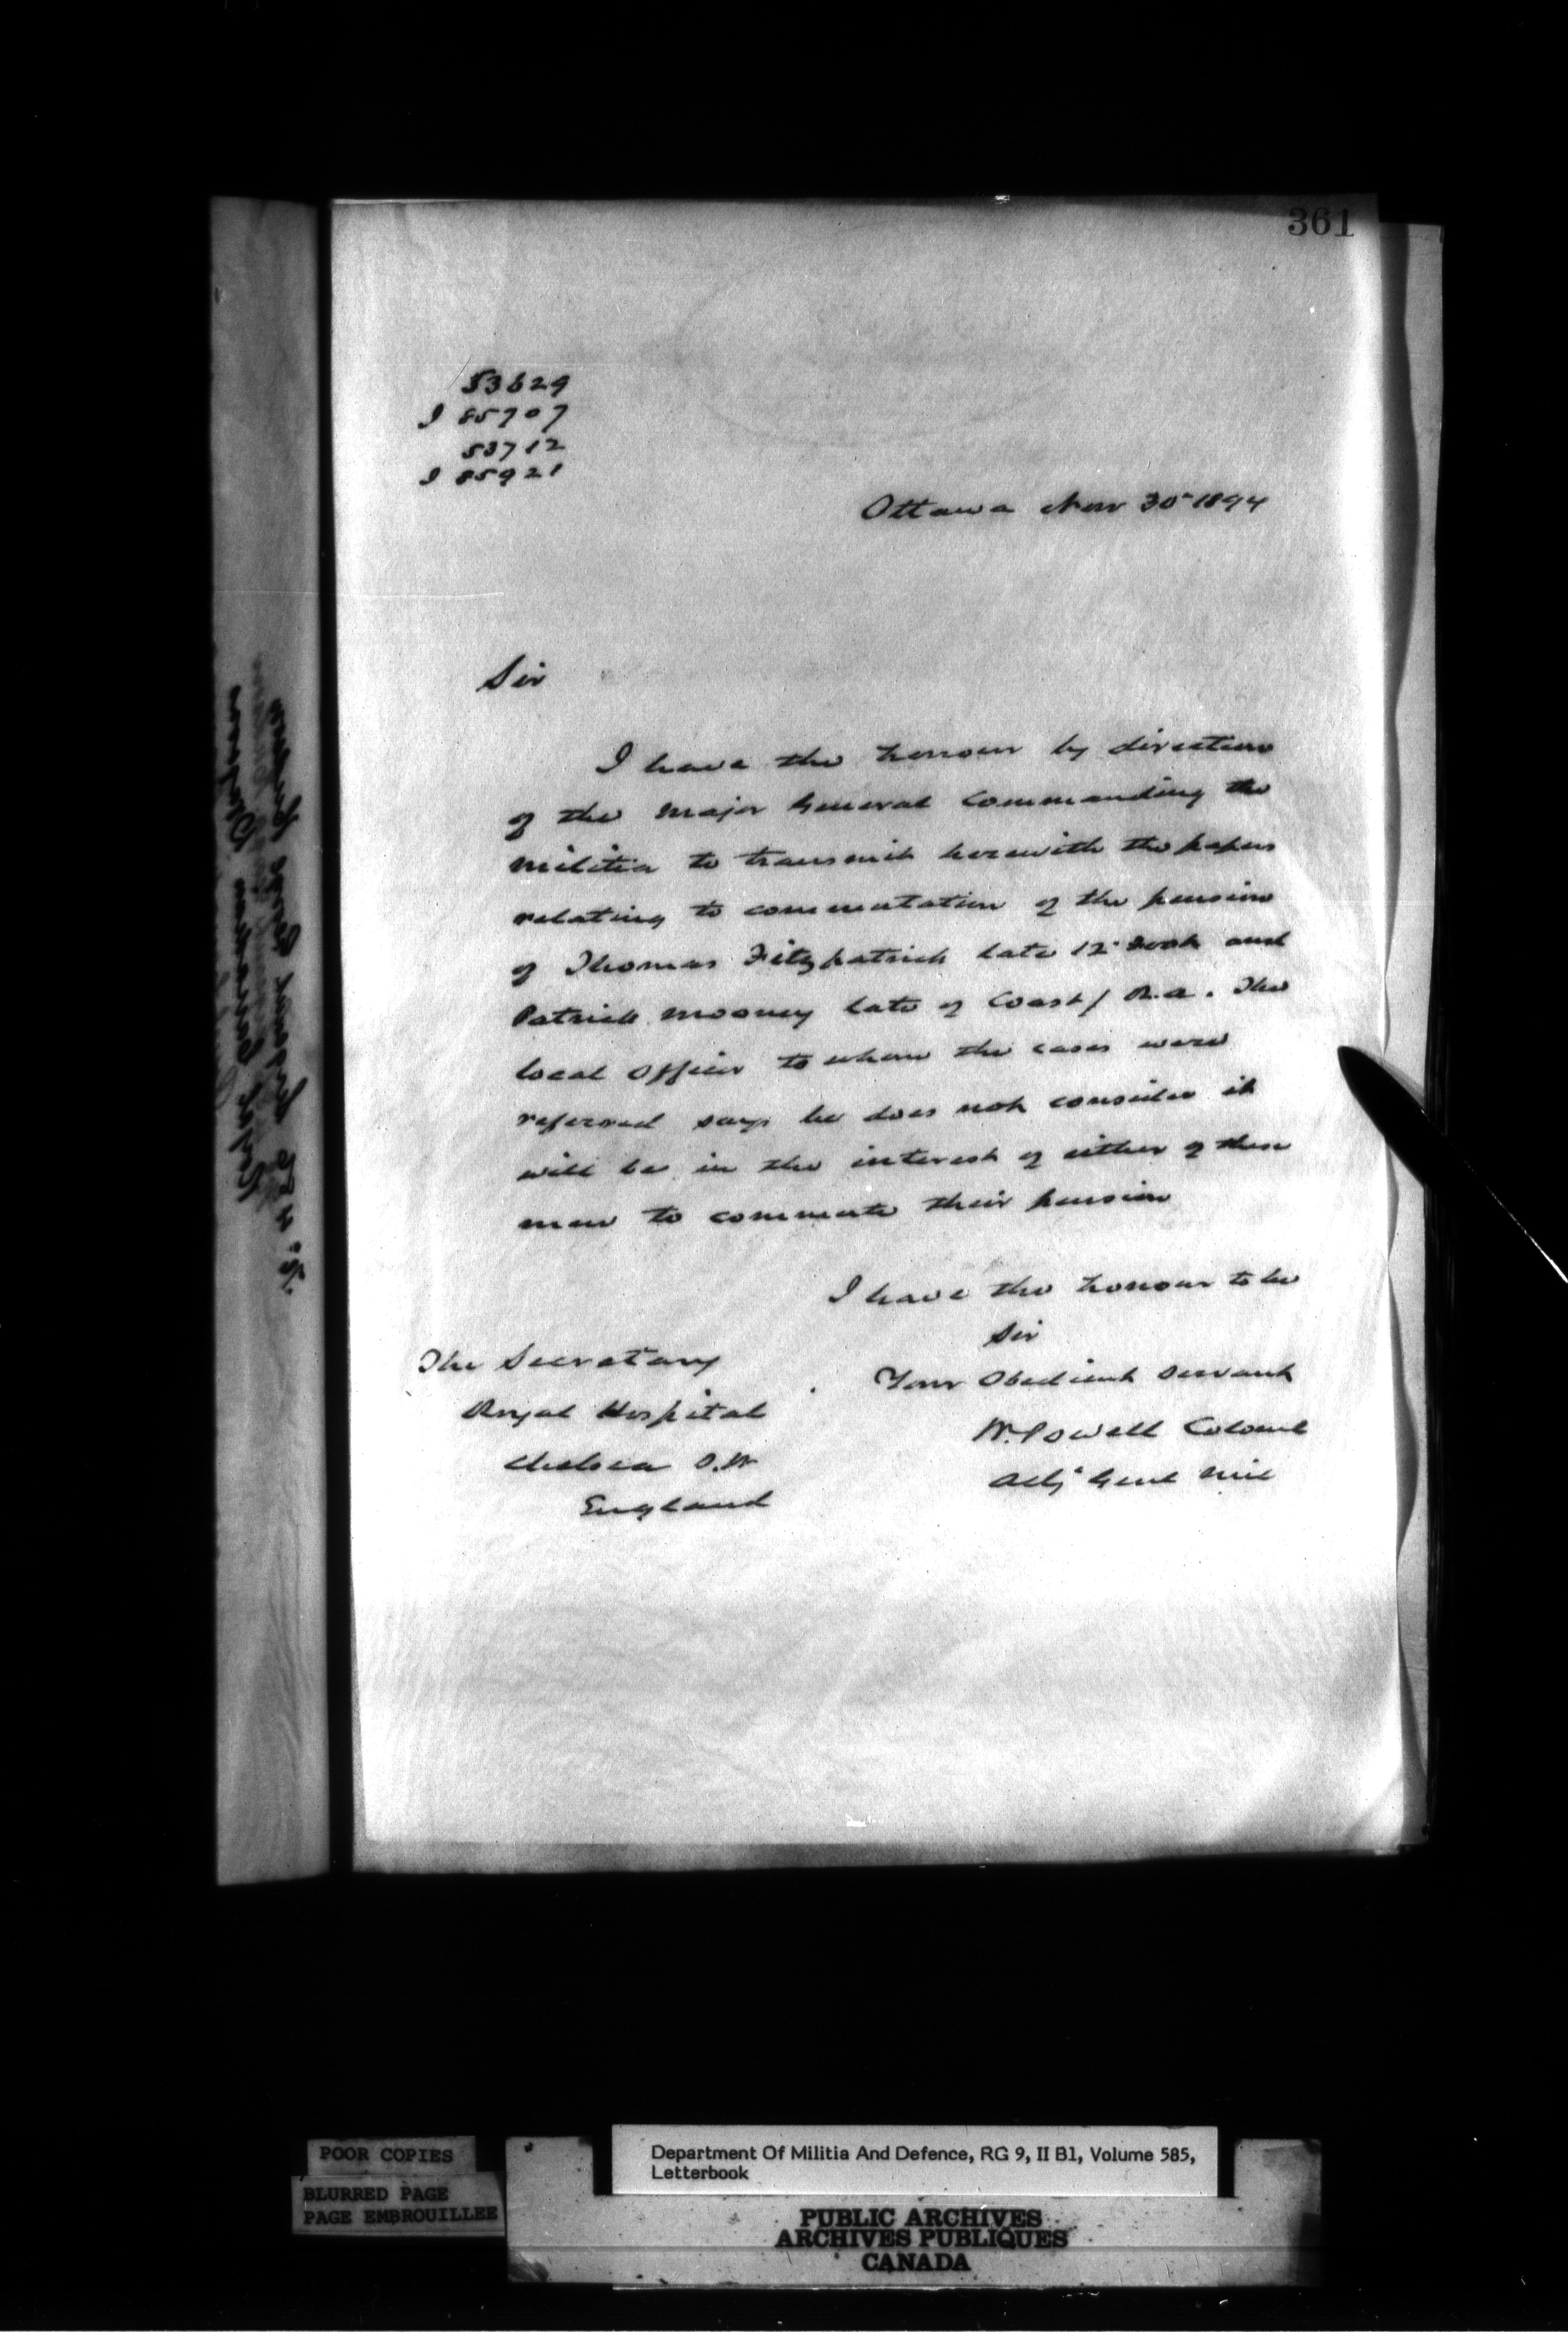 361
53629
I 85707
53712
I 85921
Ottawa Nov 30 1894
Sir
I have the honour by direction
of the Major General Commanding the
Militia to transmit herewith the papers
relating to commutation of the pension
of Thomas Fitzpatrick late 12 Foot and
Patrick Mooney late of Coast / R.A. The
local officer to whom the cases were
referred says he does not consider it
will be in the interest of either of these
men to commute their pension
I have the honour to be
Sir
Your Obedient Servant
W. Powell Colonel
Adj Genl Mil
The Secretary
Royal Hospital
Chelsea S.W
England
Royal Canadian
POOR COPIES
BLURRED PAGE
PAGE EMBROUILLEE
Department Of Militia And Defence, RG 9, II B1, Volume 585,
Letterbook
PUBLIC ARCHIVES
ARCHIVES PUBLIQUES
CANADA